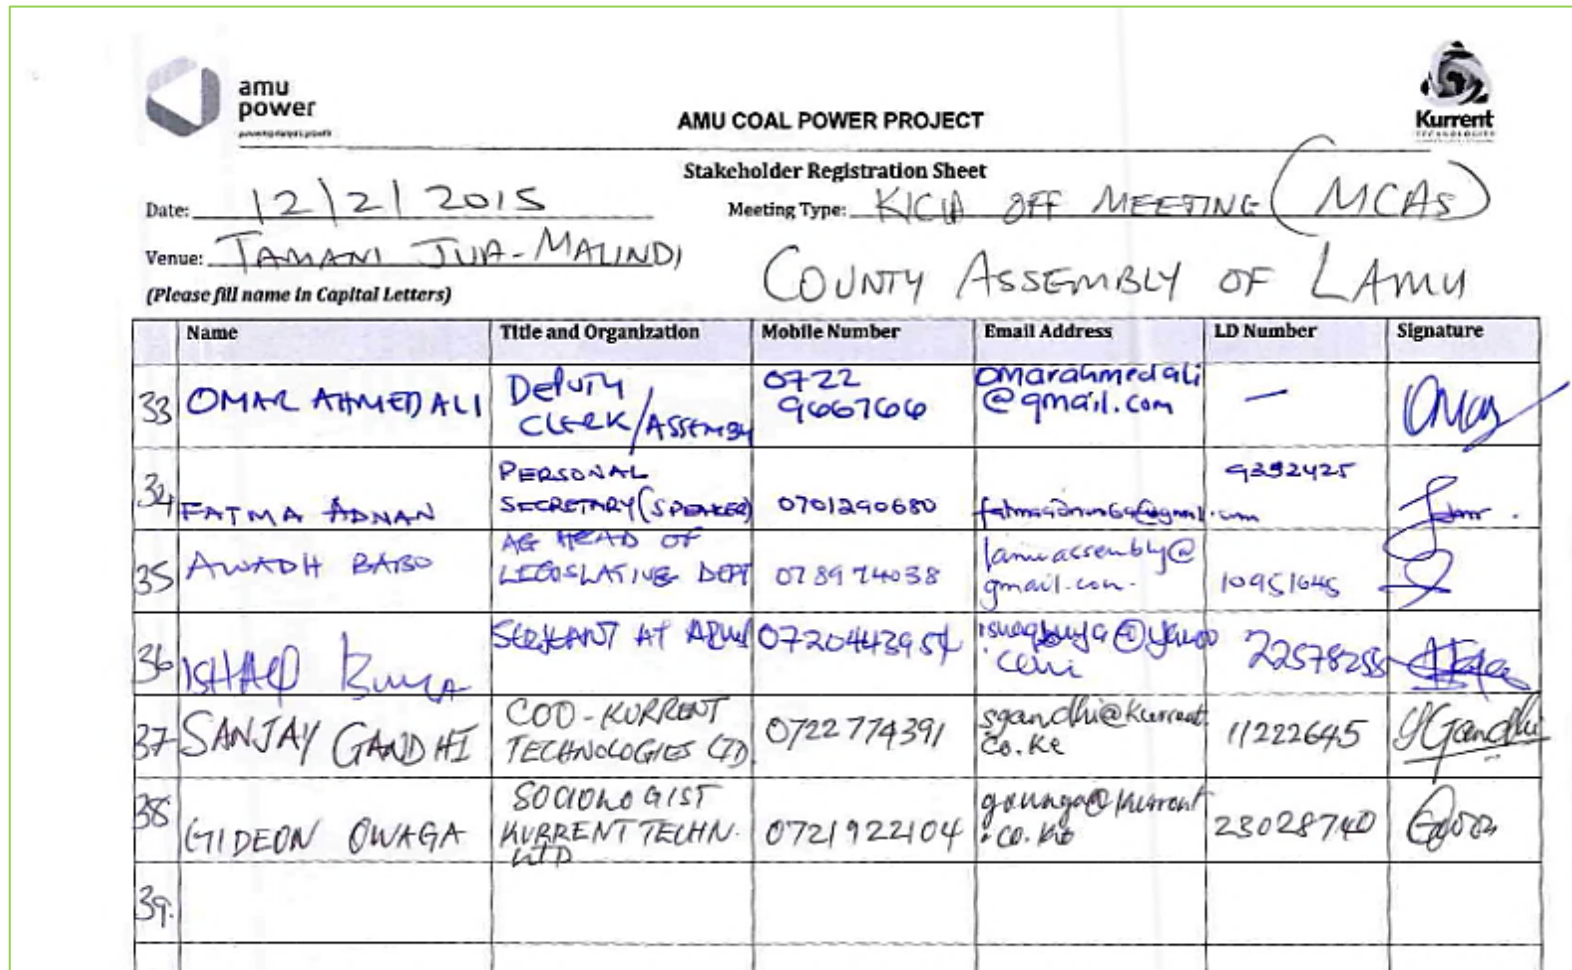 amu
power
AMU COAL POWER PROJECT
Kurrent
TECHNOLOGIES
Stakeholder Registration Sheet
Date: 12/2/2015
Meeting Type: KICK OFF MEETING (MCAs)
Venue: TAMANI JUA-MALINDI
COUNTY ASSEMBLY OF LAMU
(Please fill name in Capital Letters)
Name Title and Organization Mobile Number Email Address I.D Number Signature
33 OMAR AHMED ALI DEPUTY CLERK/ASSEMBLY 0722 9667666 omarahmedali@gmail.com —
34 FATMA ADNAN PERSONAL SECRETARY (SPEAKER) 0701290680 9392425
35 AWADH BABO AG HEAD OF LEGISLATIVE DEPT 078974038 lamuassembly@gmail.com. 10951645
36 ISHAQ BUYA SERJEANT AT ARMS 0720443954 22578255
37 SANJAY GANDHI COO-KURRENT TECHNOLOGIES LTD 0722774391 sgandhi@kurrent.co.ke 11222645 SGandhi
38 GIDEON OWAGA SOCIOLOGIST KURRENT TECHN. LTD 0721922104 23028740
39.